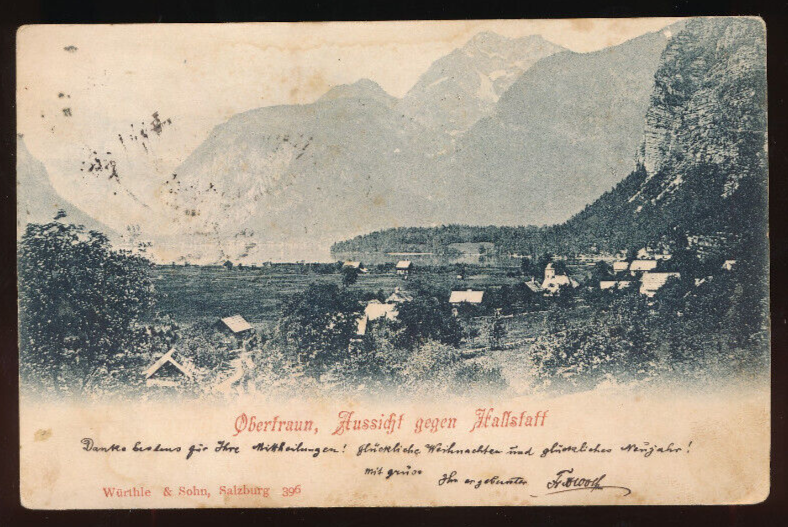 Obertraun, Aussicht gegen Hallstatt
Danke bestens für Ihre Mittheilungen! Glückliche Weihnachten und glückliches Neujahr!
Mit Gruss
Ihr ergebenster
Würthle & Sohn, Salzburg 396